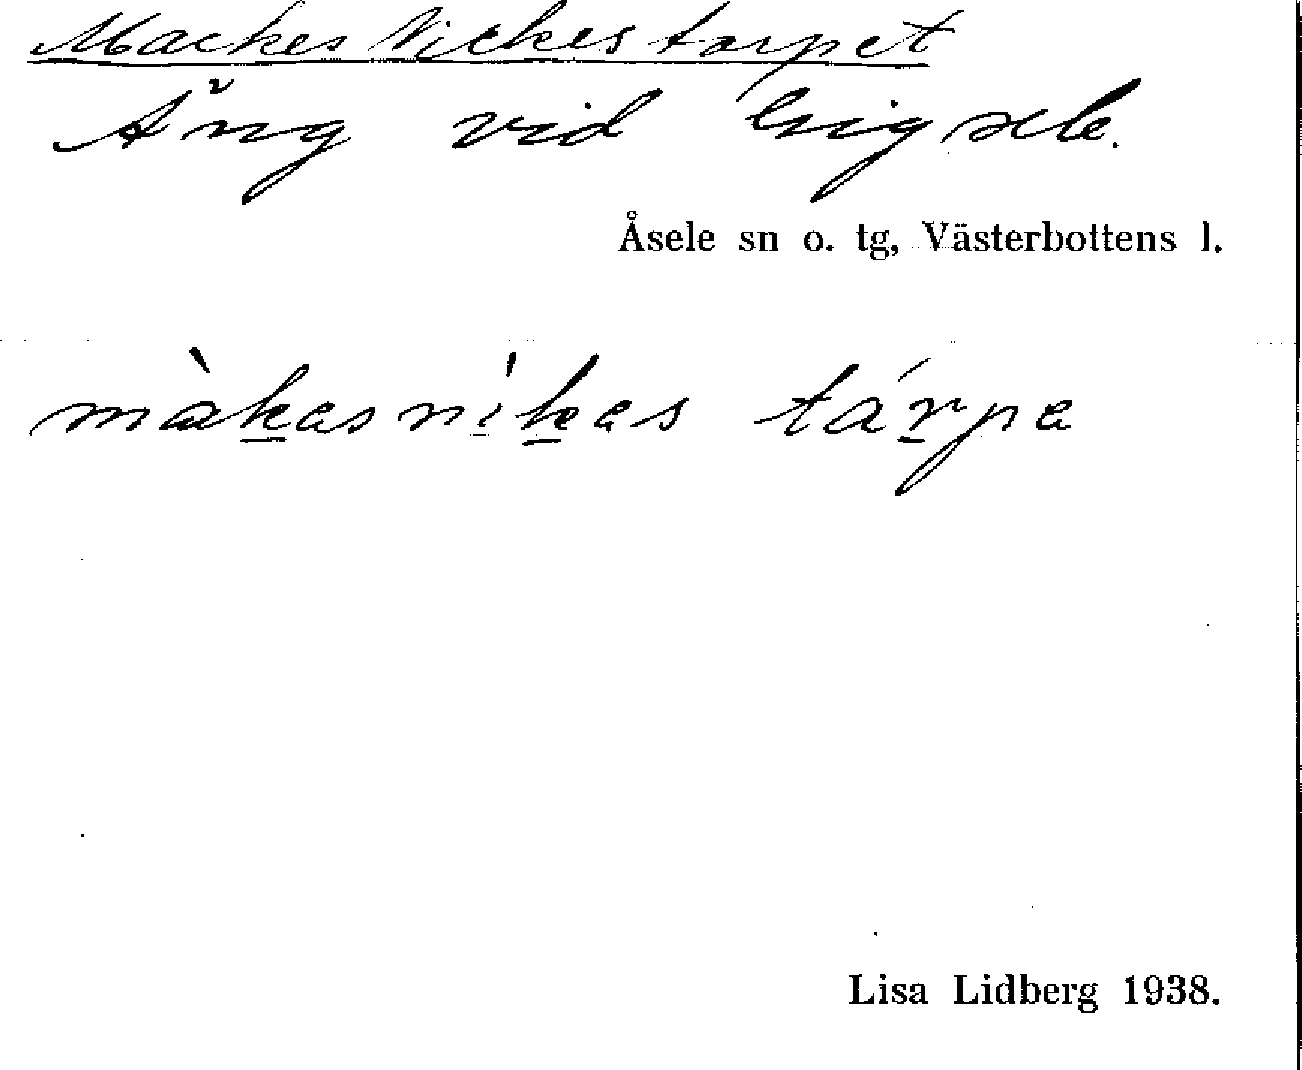 Mackes Nickes torpet
Äng vid Gigsele.
Åsele sn o. tg, Västerbottens l.
màkas nìkas tárpa
Lisa Lidberg 1938.